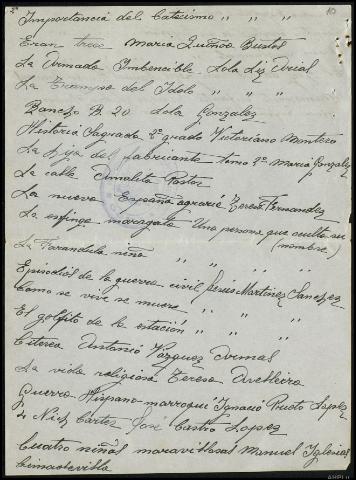 Importancia del Catecismo " " "
Eran trece Maria Quiñoa Bustos
La Armada Imbencible Lola Liz
La Trampa del Idolo " " "
Rancho B. 20 Lola Gonzalez
Historia Sagrada 2º grado Victoriano Montero
La hija del fabricante - tomo 2º Maria Gonzalez
La calle Amalita Pastor
La nueva España agraria Teresa Fernandez
La esfinge maragata Una persona que oculta su
(nombre)
La Farandula niña " " "
Episodios de la guerra civil Jesus Martinez Sanchez
Como se vive se muere " " "
El golfito de la estación " " "
Citerea Antonio Vázquez
La vida religiosa Teresa
Guerra Hispano-marroquí Ignacio Prieto Lopez
José Castro Lopez
Cuatro niñas maravillosas Manuel Iglesias